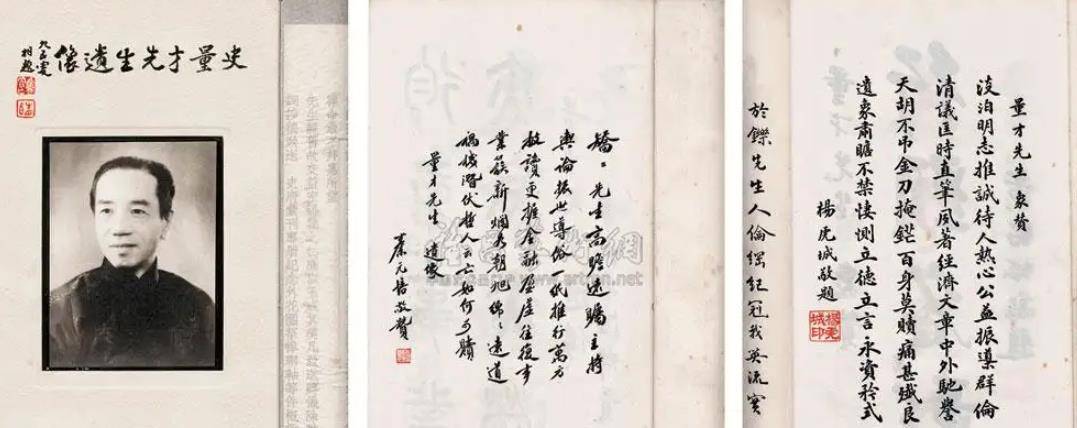 史量才先生遺像
九五叟
相伯
矯〻先生高瞻遠矚主將
輿論振世導俗一紙推行萬方
披讀更推金融盈虛往復事
業簇新爛若朝旭綿〻遠道
禍機潛伏哲人云亡如何可贖
量才先生 遺像
蔡元培敬贊
量才先生 象贊
淡泊明志推誠待人熱心公益振導群倫
清議匡時直筆夙著經濟文章中外馳譽
天胡不弔金刀掩鋩百身莫贖痛甚殲良
遺象肅瞻不禁悽惻立德立言永資矜式
楊虎城敬題
楊虎城印
於鑠先生人倫綱紀冠我英流實